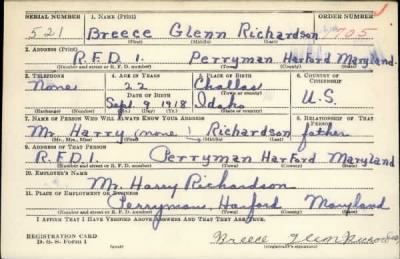 SERIAL NUMBER 1. NAME (Print) ORDER NUMBER
521 Breece Glenn Richardson 1705
(First) (Middle) (Last)
2. ADDRESS (Print)
R.F.D 1. Perryman Harford Maryland
(Number and street or R. F. D. number) (Town) (County) (State)
3. TELEPHONE 4. AGE IN YEARS 5. PLACE OF BIRTH 6. COUNTRY OF CITIZENSHIP
None 22 Challas
DATE OF BIRTH
Sept 9 1918 Idaho U.S.
(Exchange) (Number) (Mo.) (Day) (Yr.) (State or country)
7. NAME OF PERSON WHO WILL ALWAYS KNOW YOUR ADDRESS 8. RELATIONSHIP OF THAT PERSON
Mr Harry (none) Richardson father
(Mr., Mrs., Miss) (First) (Middle) (Last)
9. ADDRESS OF THAT PERSON
R.F.D 1. Perryman Harford Maryland
(Number and street or R. F. D. number) (Town) (County) (State)
10. EMPLOYER'S NAME
Mr. Harry Richardson
11. PLACE OF EMPLOYMENT OR BUSINESS
Perryman Harford Maryland
(Number and street or R. F. D. number) (Town) (County) (State)
I AFFIRM THAT I HAVE VERIFIED ABOVE ANSWERS AND THAT THEY ARE TRUE.
REGISTRATION CARD
D. S. S. FORM 1 Breece Glenn
(Registrant's signature)